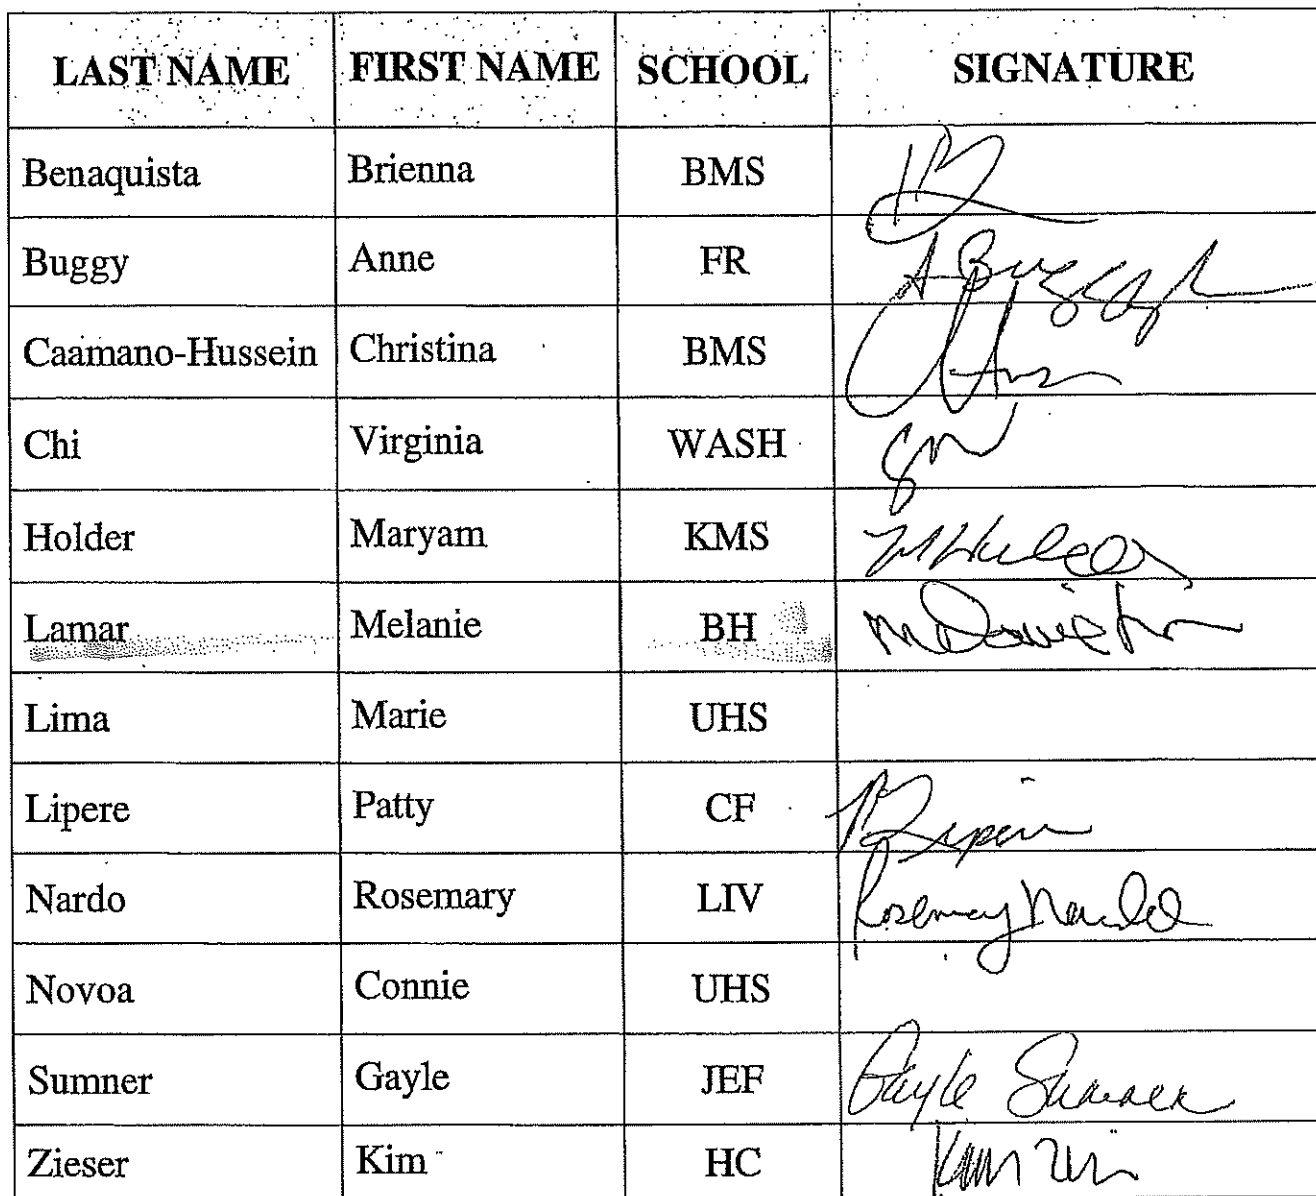 LAST NAME FIRST NAME SCHOOL SIGNATURE
Benaquista Brienna BMS
Buggy Anne FR A Buggy
Caamano-Hussein Christina BMS
Chi Virginia WASH
Holder Maryam KMS
Lamar Melanie BH
Lima Marie UHS
Lipere Patty CF
Nardo Rosemary LIV Rosemary Nardo
Novoa Connie UHS
Sumner Gayle JEF Gayle Sumner
Zieser Kim HC